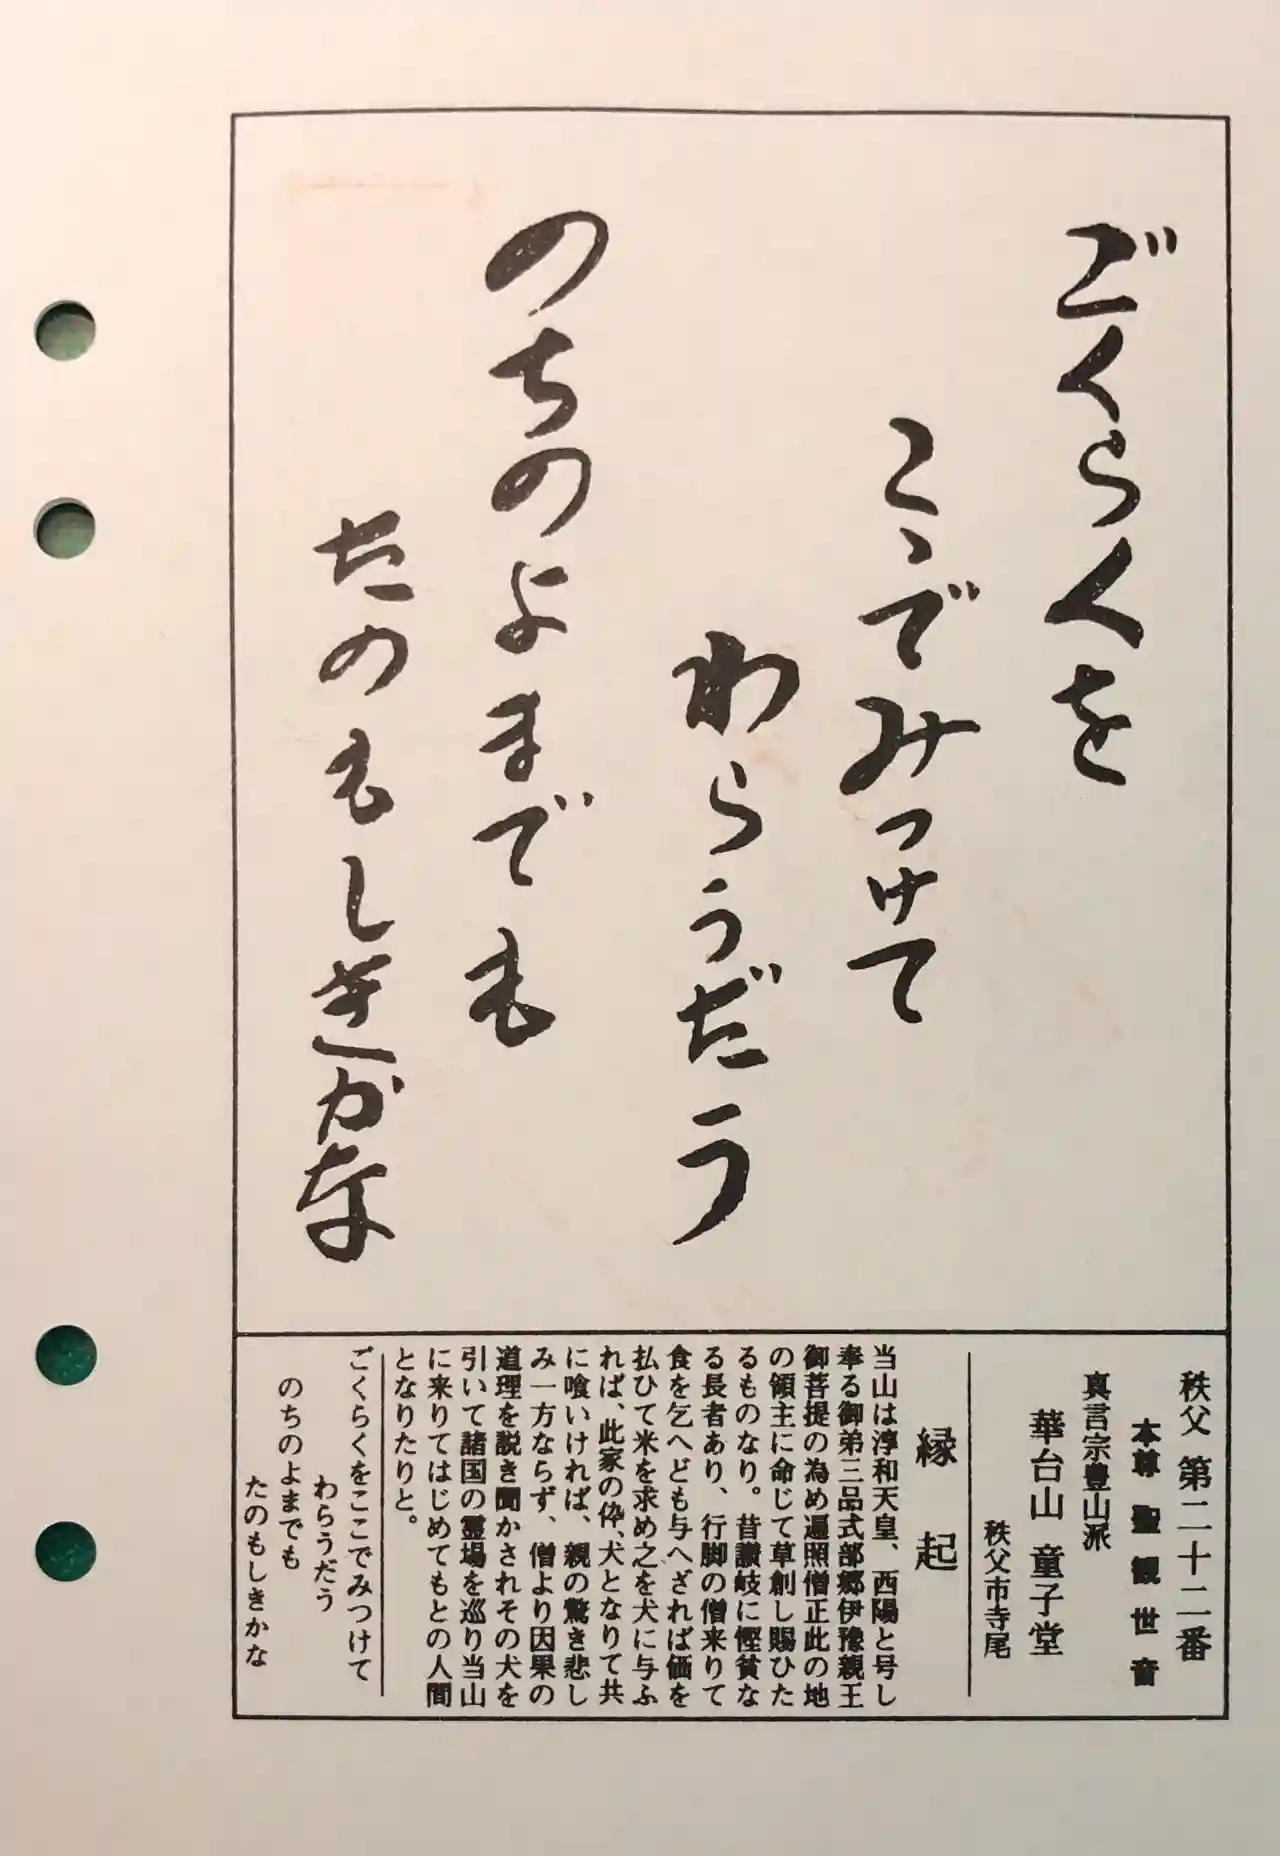 ごくらくを
こゝでみつけて
わらうだう
のちのよまでも
たのもしきかな
秩父 第二十二番
本尊 聖観世音
真言宗豊山派
華台山 童子堂
秩父市寺尾
縁起
当山は淳和天皇、西陽と号し
奉る御弟三品式部郷伊豫親王
御菩提の為め遍照僧正此の地
の領主に命じて草創し賜ひた
るものなり。昔讃岐に慳貧な
る長者あり、行脚の僧来りて
食を乞へども与へざれば価を
払ひて米を求め之を犬に与ふ
れば、此家の伜、犬となりて共
に喰いければ、親の驚き悲し
み一方ならず、僧より因果の
道理を説き聞かされその犬を
引いて諸国の霊場を巡り当山
に来りてはじめてもとの人間
となりたりと。
ごくらくをここでみつけて
わらうだう
のちのよまでも
たのもしきかな